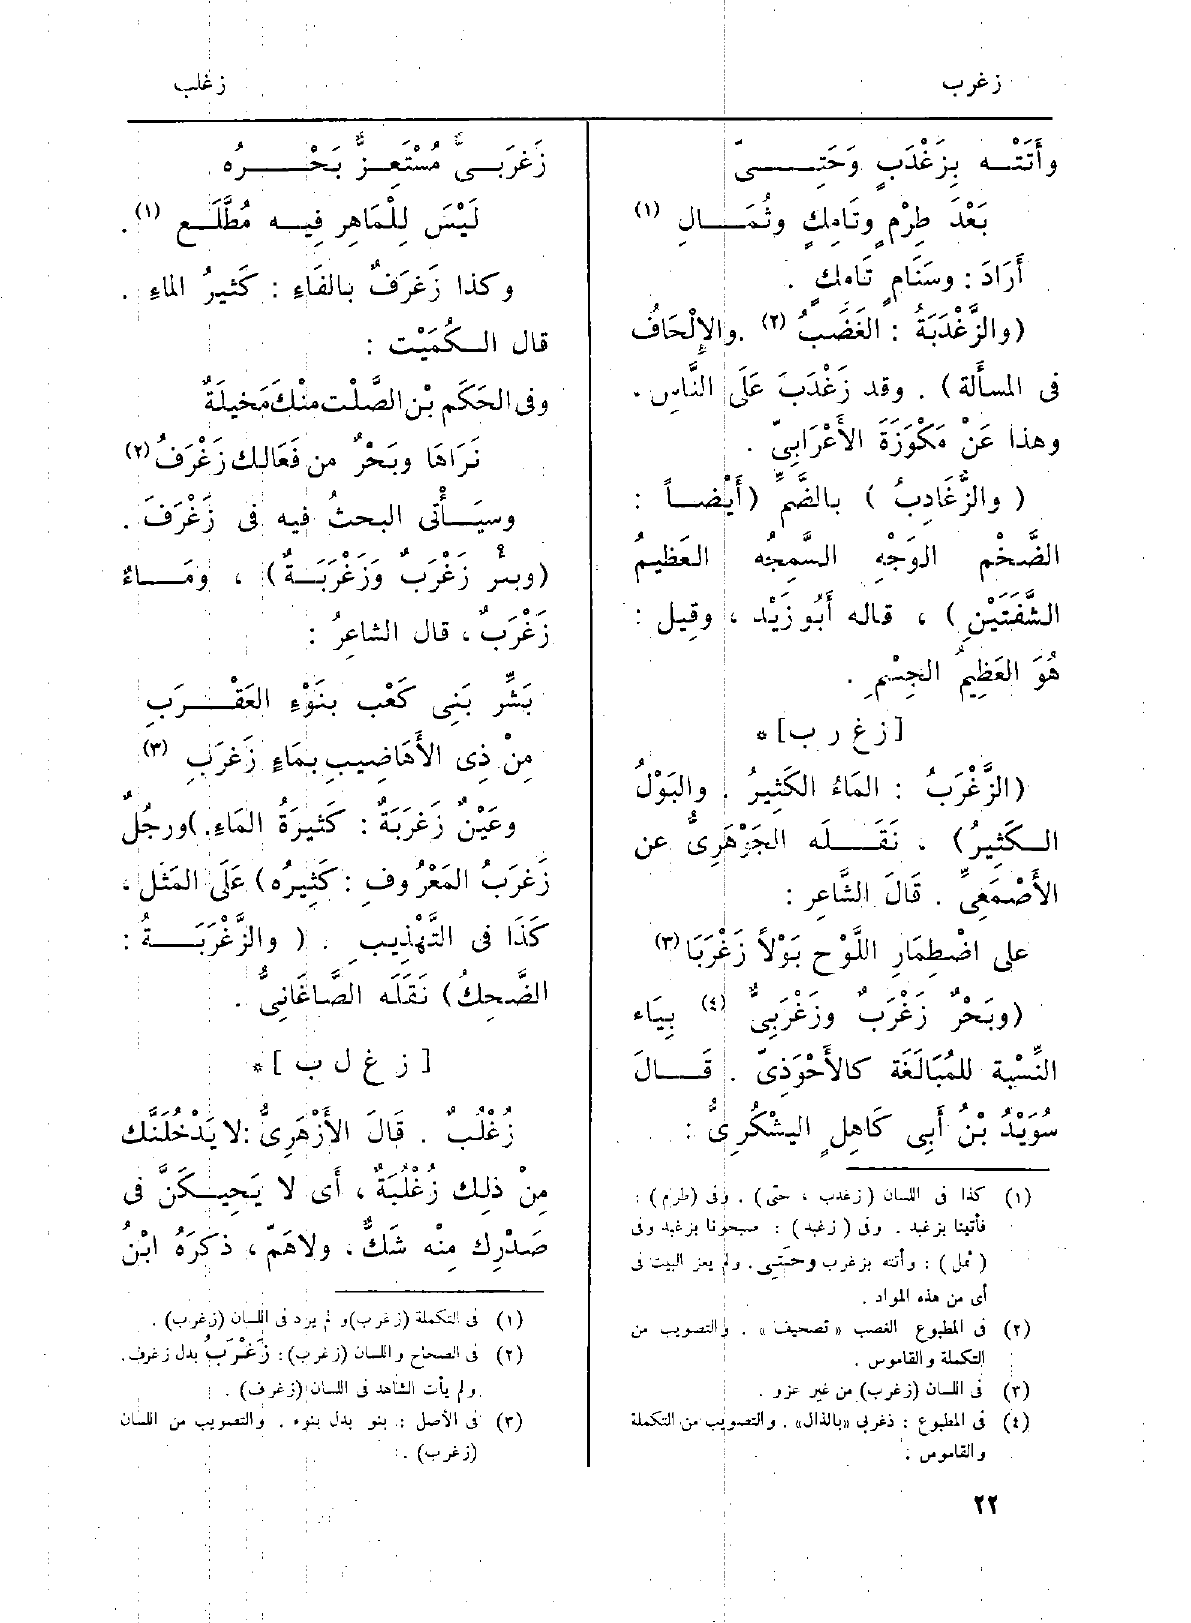 زغرب
زغلب
وأَتَتْـه بِزَغْدَبٍ وَحَتِـىّ
بَعْدَ طِرْمٍ وتَامِكٍ وثُمَـالِ (١)
أَرَادَ : وسَنَامٍ تَامكٍ .
(والزَّغْدَبَةُ : الغَضَبُ (٢) .والإِلْحَافُ
فى المسأَلة) . وقد زَغْدَبَ عَلَى النَّاسِ .
وهذا عَنْ مَكْوَزَةَ الأَعْرَابِىّ .
( والزُّغَادِبُ ) بالضَّمّ (أَيْضـاً :
الضَّخْم الوَجْهِ السَّمِجُه العَظِيمُ
الشَّفَتَيْنِ ) ، قاله أَبُو زَيْد ، وقيل :
هُوَ العَظِيمُ الجِسْمِ .
[ز غ ر ب] *
(الزَّغْرَبُ : المَاءُ الكَثِيرُ . والبَوْلُ
الـكَثِيرُ) . نَقَـلَه الجَوْهَرِىُّ عن
الأَصْمَعِىِّ . قَالَ الشَّاعِر :
على اضْطِمَارِ اللَّوْح بَوْلاً زَغْرَبَا (٣)
(وبَحْرٌ زَغْرَبٌ وزَغْرَبِىٌّ (٤) بِيَاء
النِّسْبة للمُبَالَغَة كالأَحْوَذِىّ . قَـالَ
سُوَيْدُ بْنُ أَبِى كَاهِلٍ اليشْكُرِىُّ :
(١) كذا فى اللسان (زغدب ، حتى) . وفى (طرم) :
فأتينا بزغبد . وفى ( زغبد ) : صبحونا بزغبد وفى
( ثمل ) : وأتته بزغرب وحَتِىّ . ولم يعز البيت فى
أى من هذه المواد .
(٢) فى المطبوع الغصب « تصحيف » . والتصويب من
التكملة والقاموس .
(٣) فى اللسان (زغرب) من غير عزو .
(٤) فى المطبوع : ذغربى «بالذال» . والتصويب من التكملة
والقاموس .
زَغرَبىٌّ مُسْتَعِزٌّ بَحْـرُه
لَيْسَ لِلْمَاهِر فِيـه مُطَّلَـع (١) .
وكذا زَغرَفٌ بالفَاءِ : كَثيرُ الماءِ .
قال الـكُمَيْت :
وفى الحَكَم بْن الصَّلْت منْكَ مَخيلَةٌ
نَرَاهَا وبَحْرٌ من فَعَالك زَغْرَفُ (٢)
وسيَـأْتى البحثُ فيه فى زَغْرَفَ .
(وبئْر زَغْرَبٌ وَزَغْرَبَـةٌ) ، ومَـاءٌ
زَغْرَبٌ ، قال الشاعرُ :
بَشِّر بَنِى كَعْب بنَوْءِ العَقْـرَبِ
مِنْ ذِى الأَهَاضِيبِ بمَاءٍ زَغرَبِ (٣)
وعَيْنٌ زَغرَبَةٌ : كَثيرَةُ المَاءِ .)ورجُلٌ
زَغرَبُ المَعْرُوفِ : كَثيرُه) عَلَى المَثَل ،
كَذَا فى التَّهْذِيبِ . ( والزَّغْرَبَـةُ :
الضَّحِكُ) نَقَلَه الصَّاغَانِىُّ .
[ ز غ ل ب ] *
زُغْلُبٌ . قَالَ الأَزْهَرِىُّ :لا يَدْخُلَنَّكَ
مِنْ ذلِكَ زُغْلُبَةٌ ، أَى لا يَحِيـكَنَّ فى
صَدْرِك مِنْه شَكٌّ ، ولاهَمّ ، ذكرَهُ ابْنُ
(١) فى التكملة (زغرب)و لم يرد فى اللسان (زغرب) .
(٢) فى الصحاح واللسان (زغرب) : زَغْرَبُ بدل زغرف .
ولم يأت الشاهد فى اللسان (زغرف) .
(٣) فى الأصل : بنو بدل بنوء . والتصويب من اللسان
(زغرب) .
٢٢